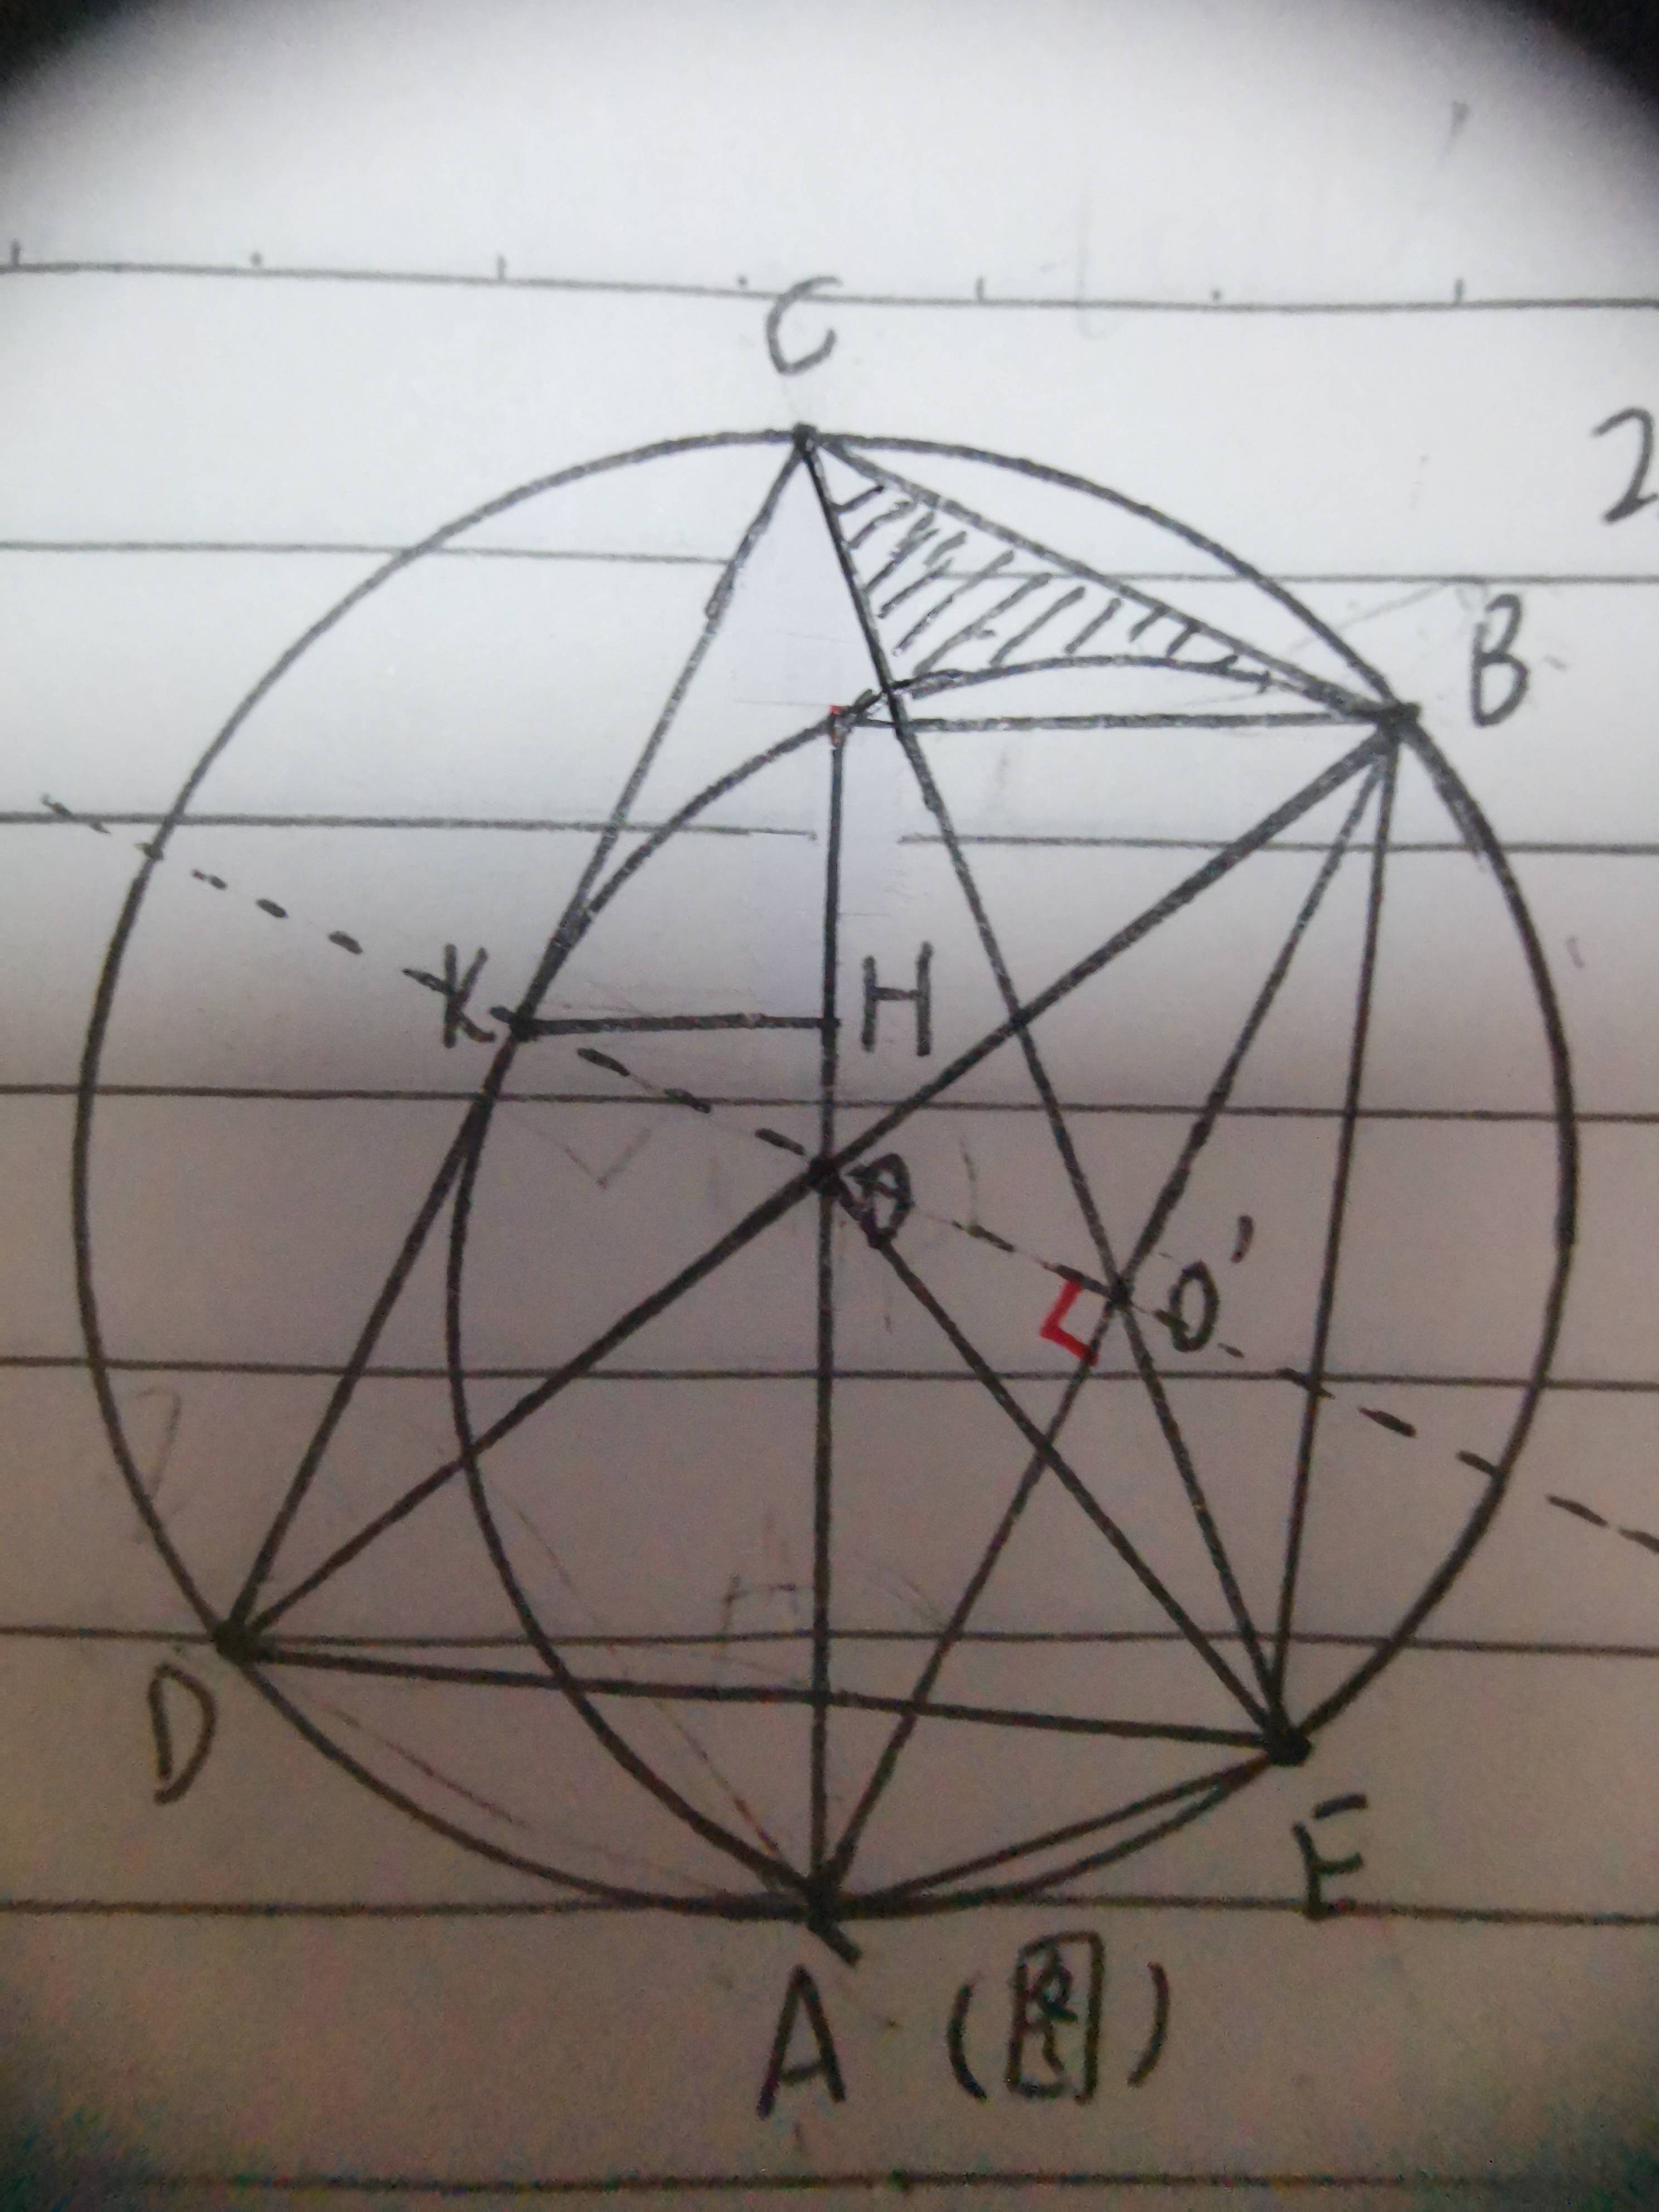 C
2
B
K H
O'
D
E
A (图)